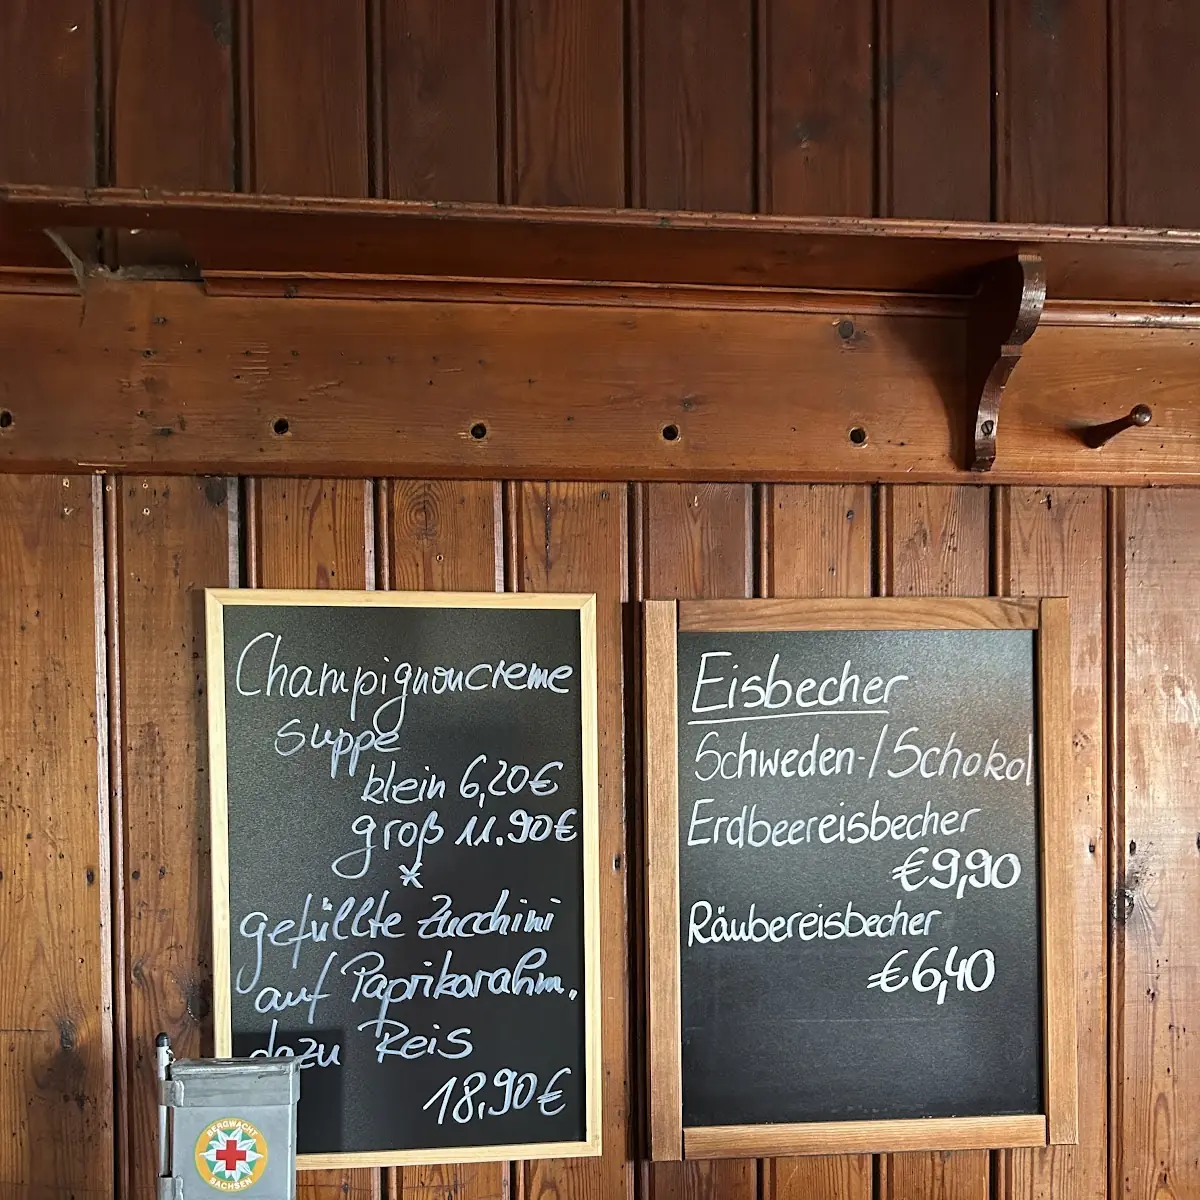 Champignoncreme
suppe
klein 6,20€
groß 11.90€
*
gefüllte Zucchini
auf Paprikarahm,
dazu Reis
18,90€
Eisbecher
Schweden-/Schokol
Erdbeereisbecher
€9,90
Räubereisbecher
€6,40
BERGWACHT
SACHSEN